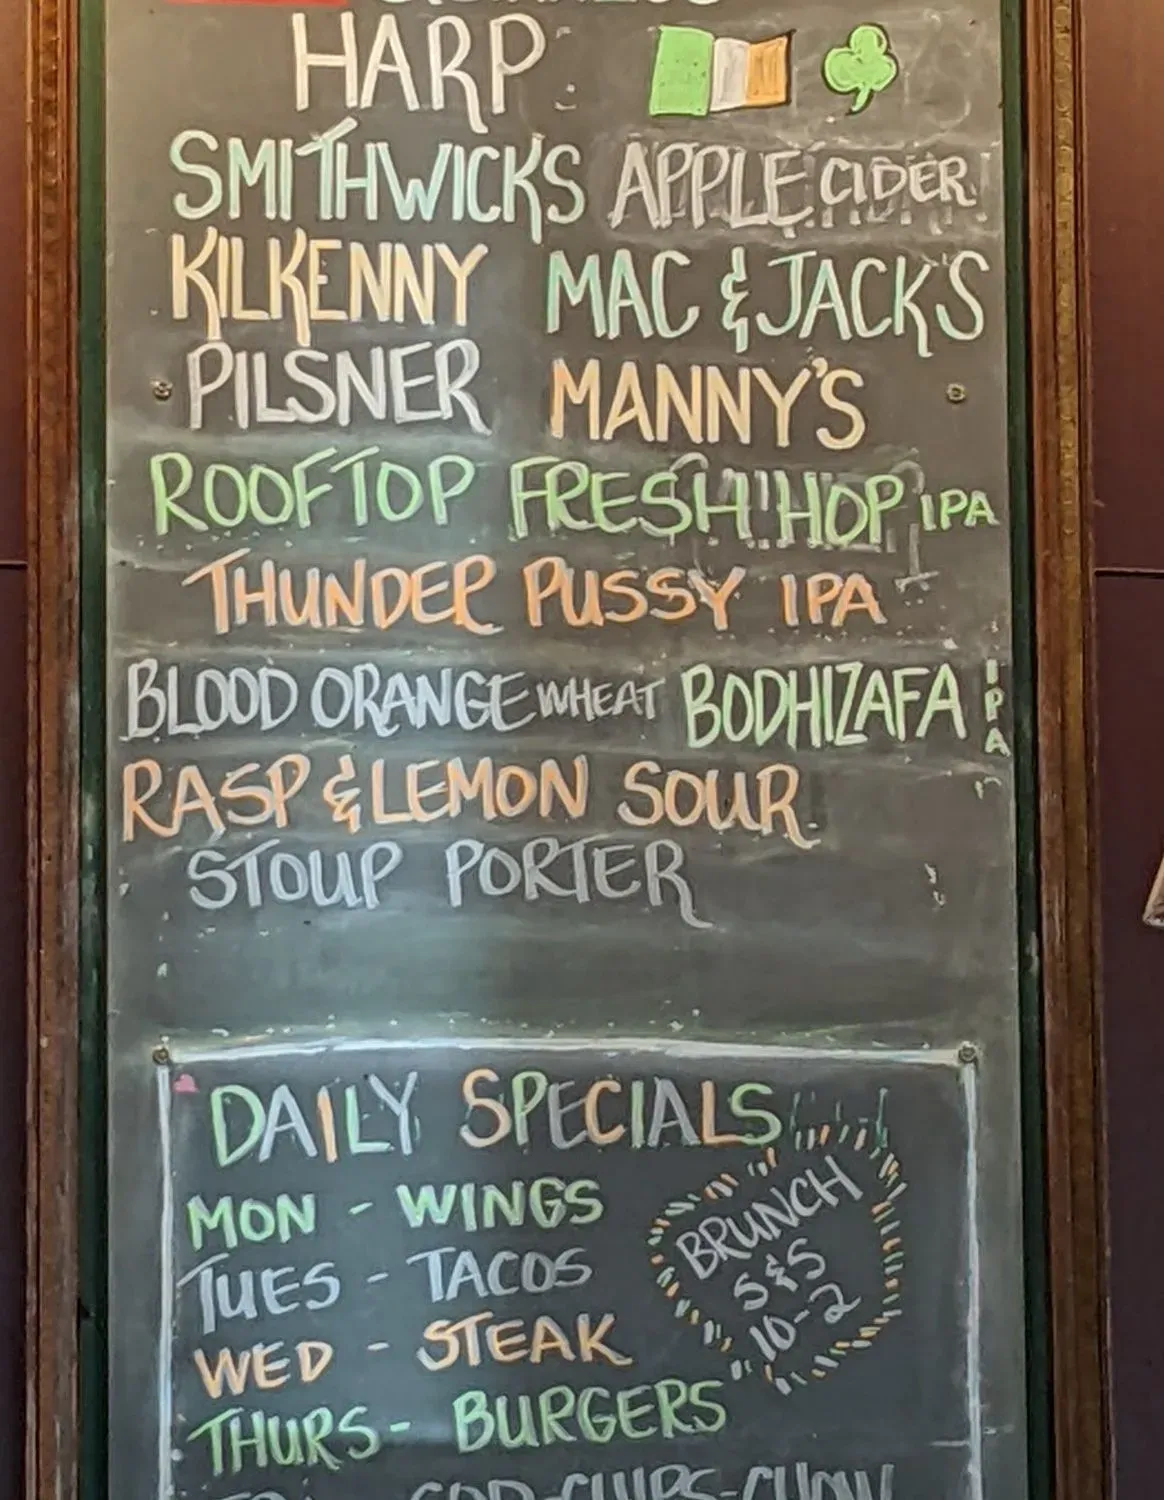 HARP
SMITHWICKS APPLE CIDER
KILKENNY MAC & JACK'S
PILSNER MANNY'S
ROOFTOP FRESH HOP IPA
THUNDER PUSSY IPA
BLOOD ORANGE WHEAT BODHIZAFA IPA
RASP & LEMON SOUR
STOUP PORTER
DAILY SPECIALS
MON - WINGS
TUES - TACOS
WED - STEAK
THURS - BURGERS
BRUNCH
S&S
10-2